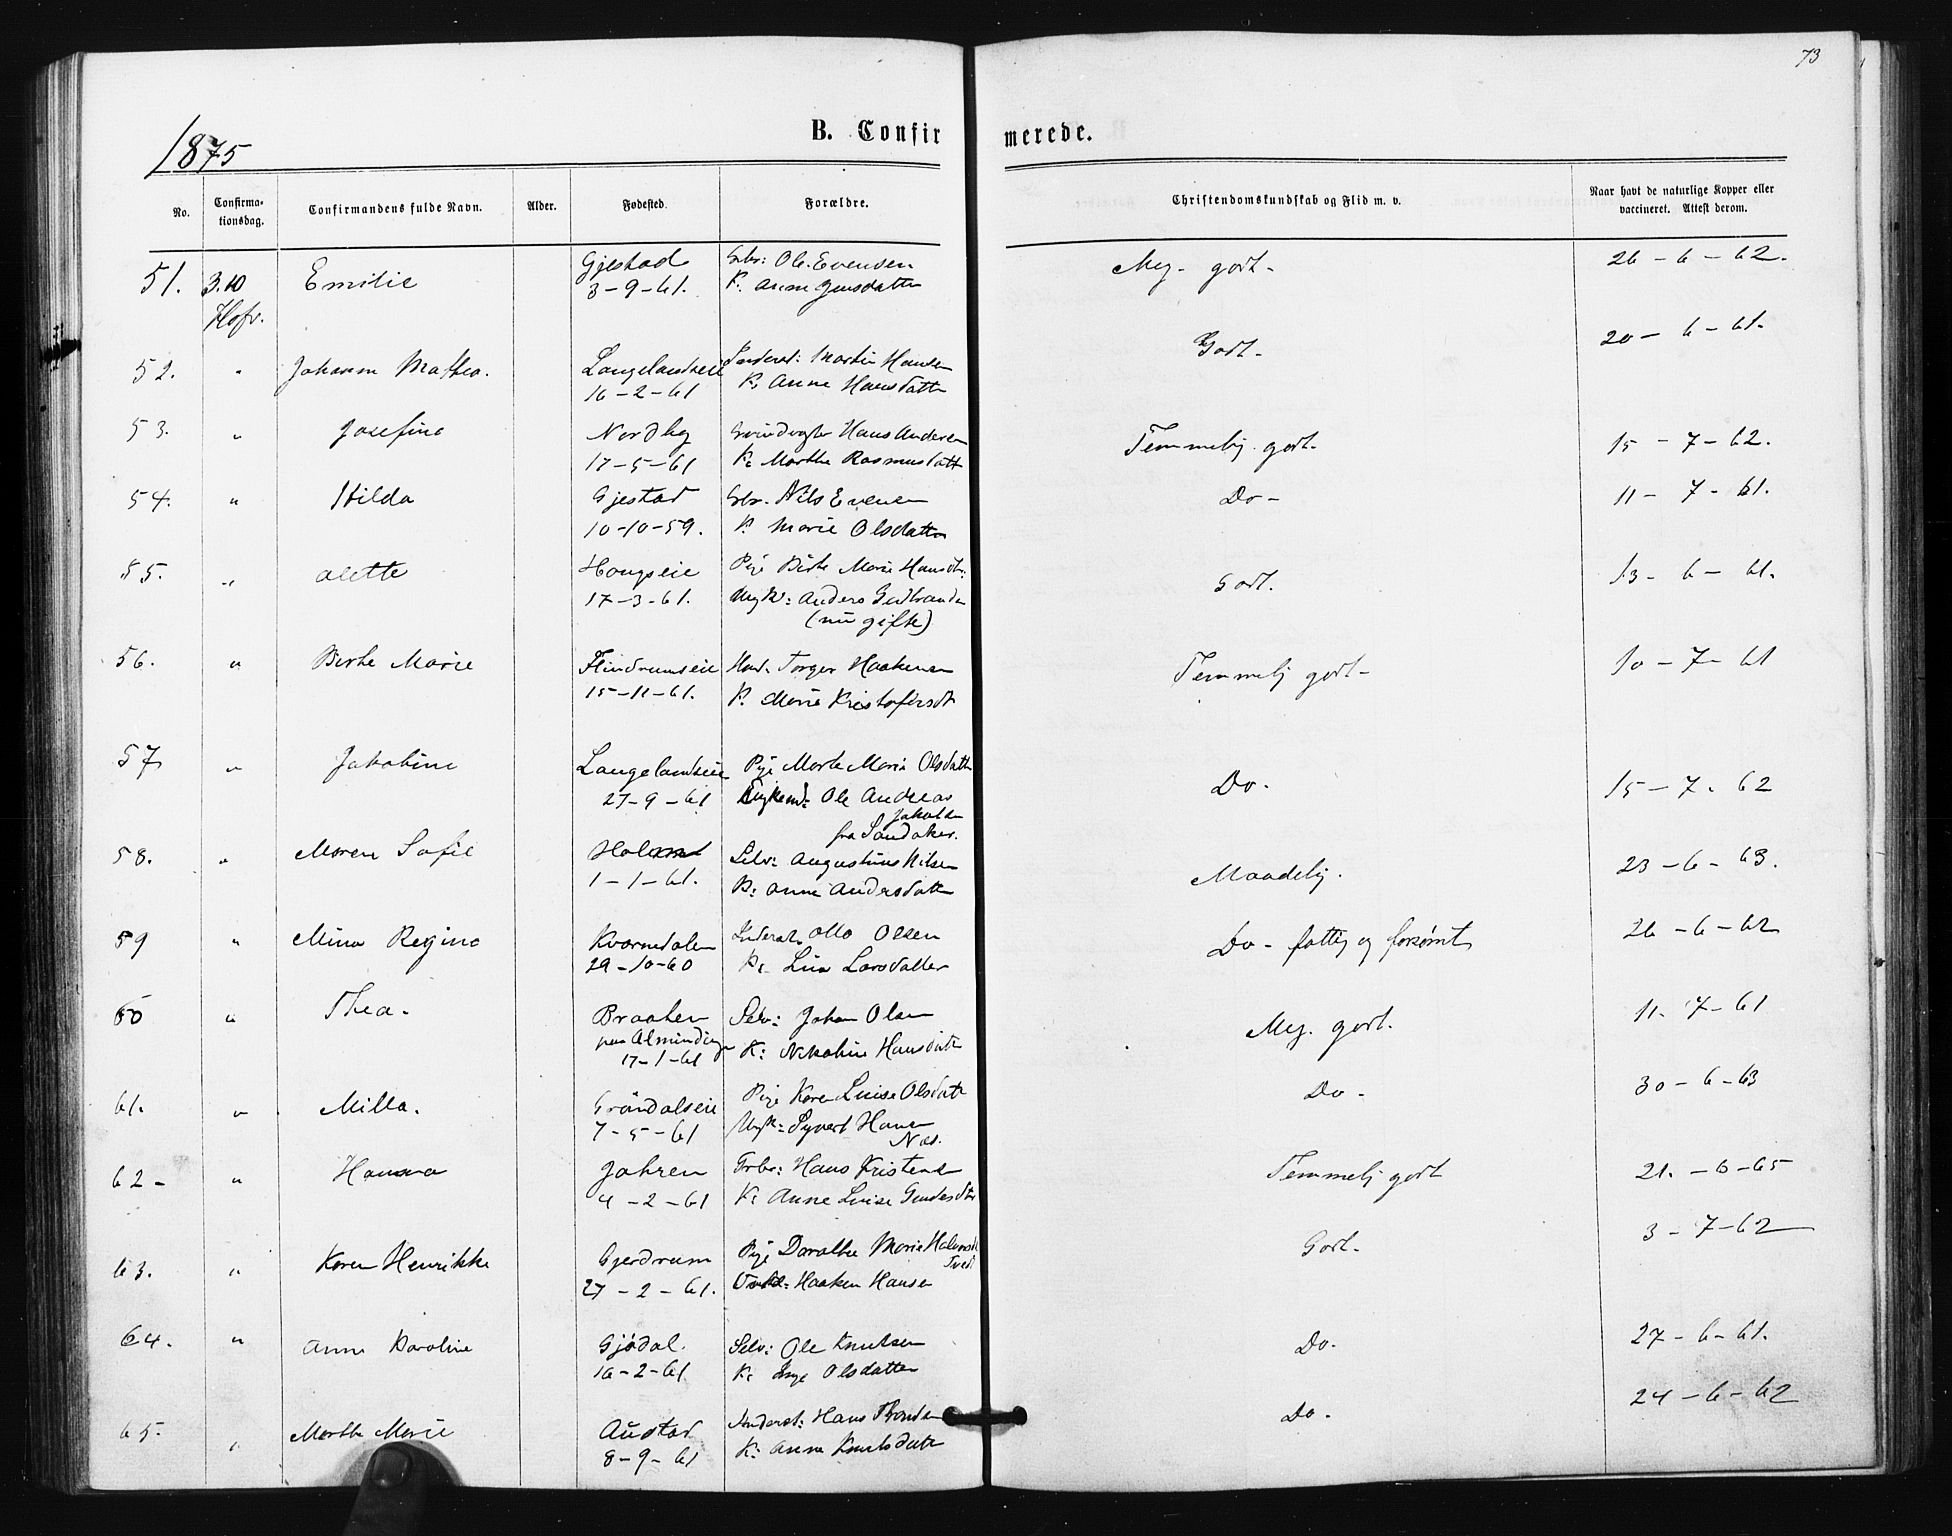 73
1875
B. Confir merede.
No.
Confirma-
tionsdag.
Confirmandens fulde Navn.
Alder.
Fødested.
Forældre.
Christendomskundskab og Flid m. v.
Naar havt de naturlige Kopper eller
vaccineret. Attest derom.
51. 3.10 Emilie Gjestad Gbr: Ole Evensen Meg. godt. 26-6-62.
Hofv. 3-9-61. K: Anne Jensdatter
52. " Johanne Mathea. Langelandseie Inderst: Martin Hansen Godt. 20-6-61.
16-2-61 K: Anne Hansdatter
53. " Josefine Nordby Hans Andersen Temmelig godt. 15-7-62.
17-5-61 K: Marthe Rasmusdatt
54. " Hilda Gjestad Gbr. Nils Evensen Do- 11-7-61.
10-10-59. K: Marie Olsdatter
55. " Alette Hougseie Pige Birte Marie Hansdtr: Godt. 13-6-61.
17-3-61. Ungk: Anders Gulbrandsen
(nu gifte)
56. " Birte Marie Flindrumseie Torger Haakensen Temmelig godt- 10-7-61
15-11-61. K. Marie Kristofersdt
57 " Jakobine Langelandseie Pige Marte Marie Olsdatter Do. 15-7-62
27-9-61 Ungkarl: Ole Andreas
Jakobsen
fra Sandaker.
58. " Maren Sofie Selv: Augustinus Nilsen Maadelig. 23-6-63.
1-1-61. K: Anne Andersdatter
59 " Mina Regine Kvernedalen Inderst. Otto Olsen Do- fattig og forsømt 26-6-62
29-10-60 K: Lina Larsdatter
60 " Thea. Braaten Selv: Johan Olsen Meg. godt. 11-7-61
paa Almindingen
17-1-61 K: Nikoline Hansdatter
61. " Milla. Grøndalseie Pige Karen Luise Olsdatter Do- 30-6-63
7-5-61 Ungk: Syvert Hansen
Næs.
62- " Hanna Jahren Gbr: Hans Kristensen Temmelig godt 21.-6-65
4-2-61 K: Anne Luise
63. " Karen Henrikke Gjerdrum Pige Dorothe Marie Godt. 3-7-62
27-2-61. Haaken Hansen
64. " Anne Karoline Gjødal. Selv: Ole Knutsen Do. 27-6-61.
16-2-61. K: Inge Olsdatter
65. " Marthe Marie Austad Inderst: Hans Do. 24-6-62
8-9-61 K: Anne Knutsdatter